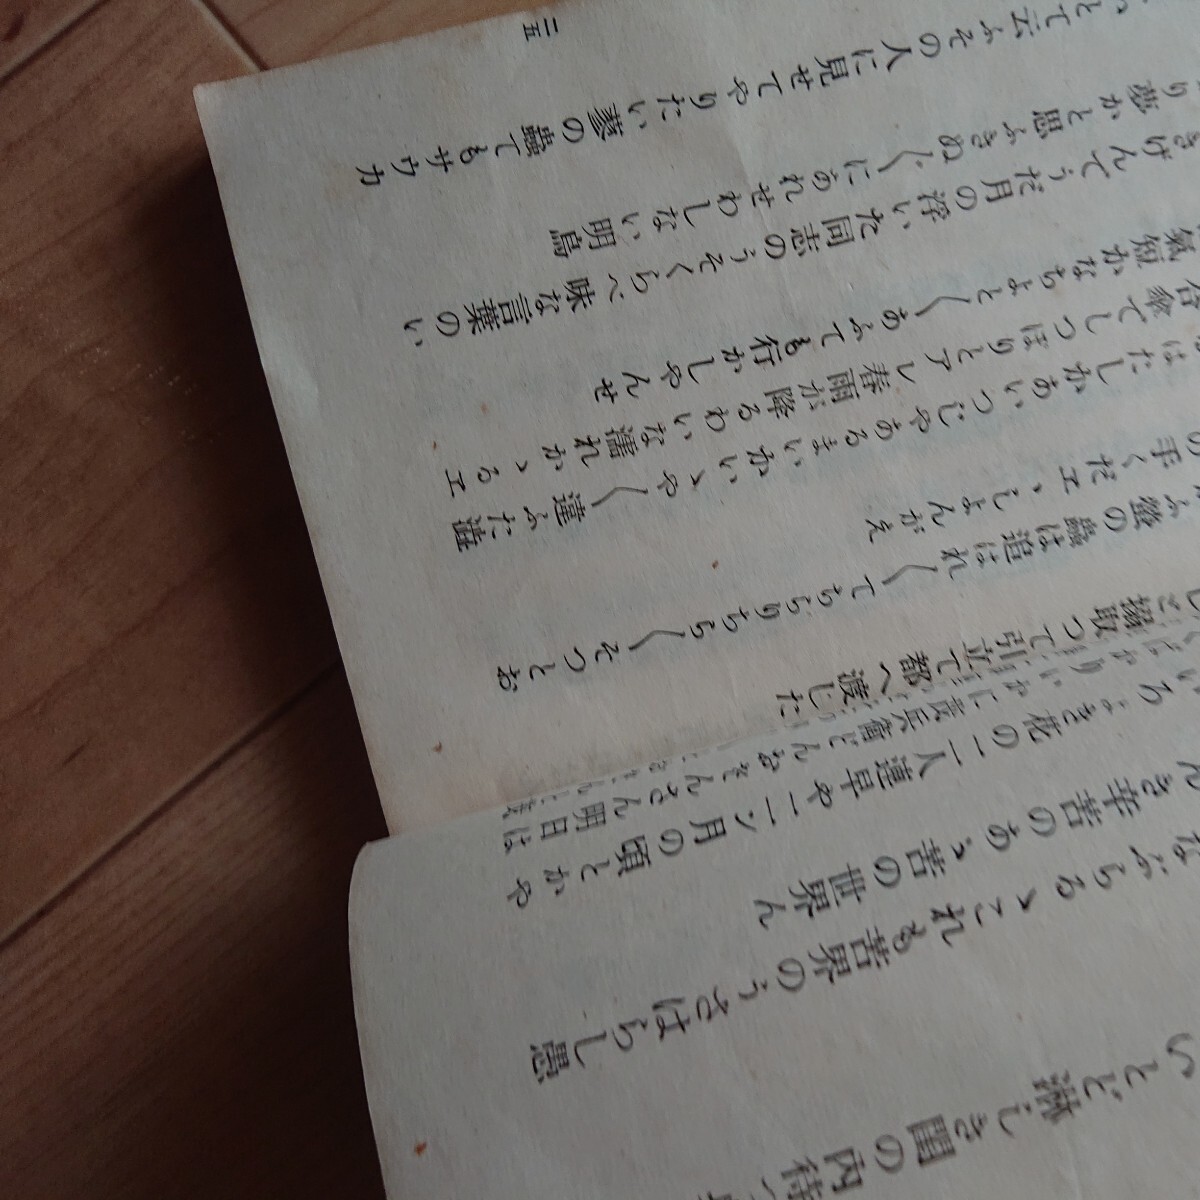 いとど淋しき閨の内待つ
なぶらるゝこれも苦界のうさはらし愚
んき辛苦のあゝ苦の世界ん
ろよき花の二人連早や二ン月の頃とかや
ど撥取つて引立て都へ渡した
ふ螢の蟲は追はれ〱てちらりちら〱そつとお
の手くだエヽしよんがえ
はたしかあいつじやあるまいかいゝや〱違ふた蓮
合傘でしつぽりとアレ春雨が降るわいな濡れかゝるエ
氣短かなちよと〱あふても行かしやんせ
きげんてうだ月の浮いた同志のうそくらべ味な言葉のい
り夢かと思ふきぬ〲にあれせわしない明烏
いとて云ふその人に見せてやりたい蓼の蟲てもサウカ
三五